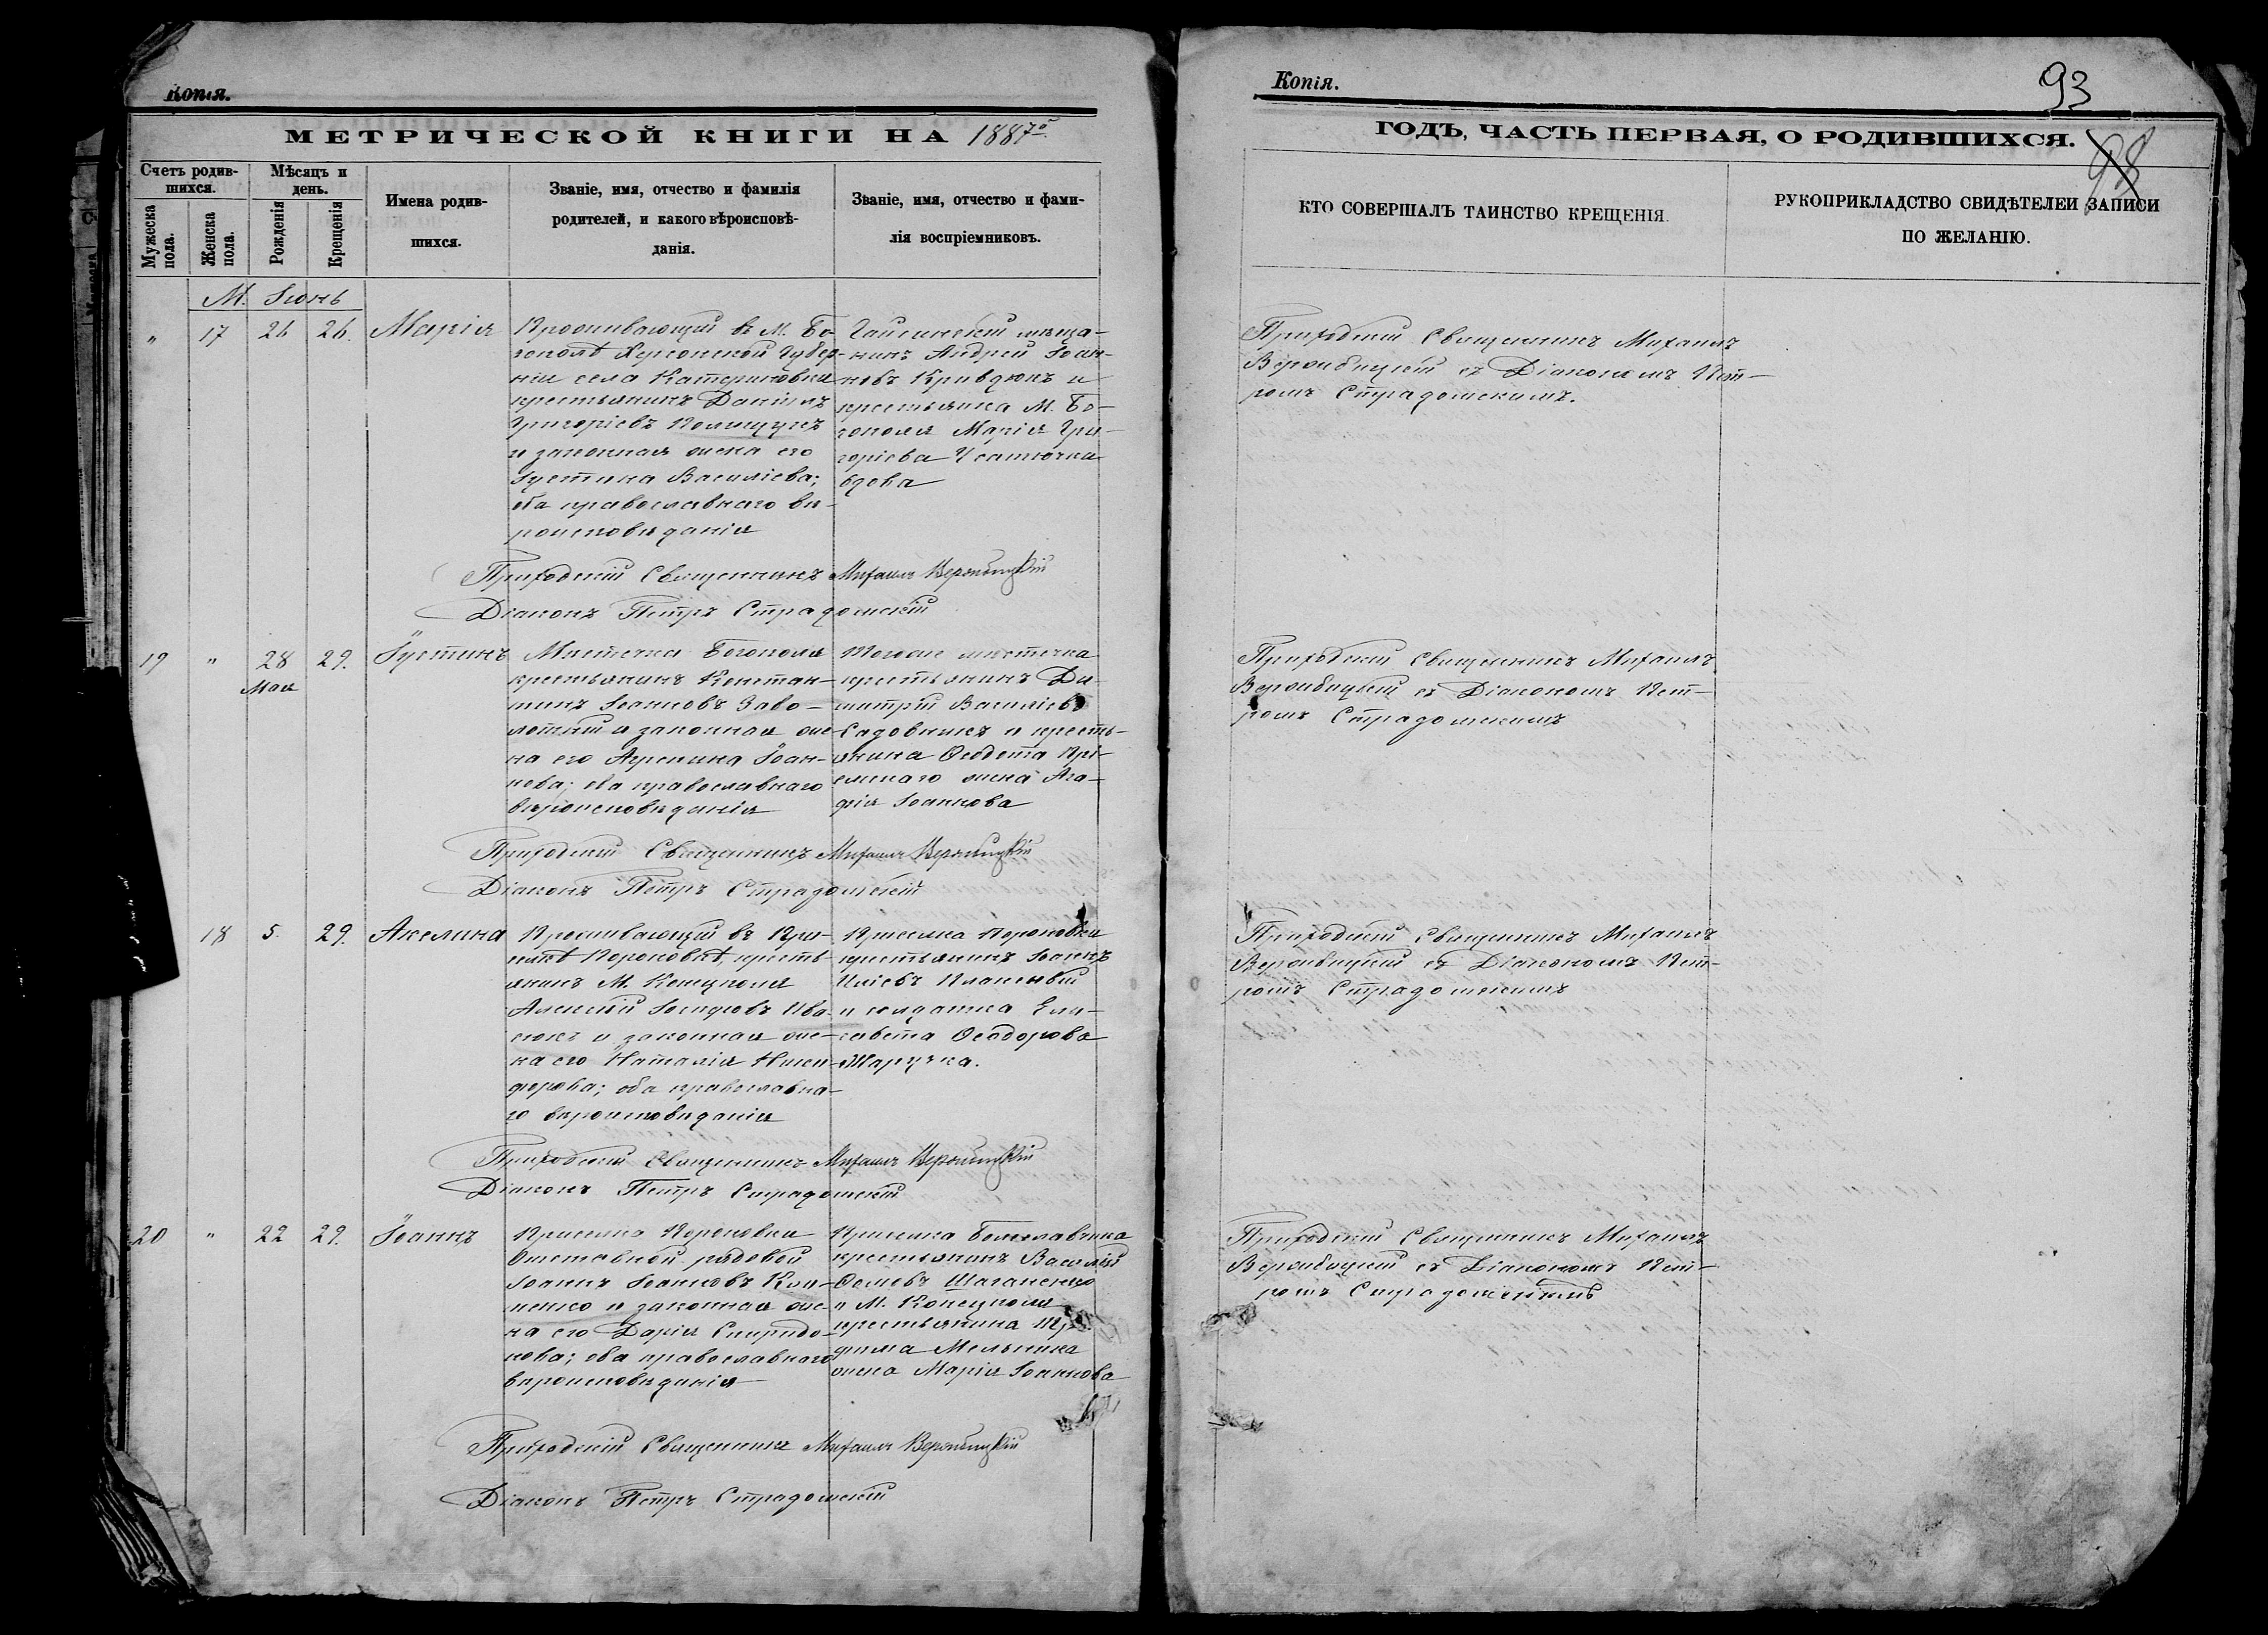 Копія.
МЕТРИЧЕСКОЙ КНИГИ НА 1887й
Счетъ родив-
шихся.
Мѣсяцъ и
день.
Мужеска
пола.
Женска
пола.
Рожденія
Крещенія
Имена родив-
шихся.
Званіе, имя, отчество и фамилія
родителей, и какого вѣроисповѣ-
данія.
Званіе, имя, отчество и фами-
лія воспріемниковъ.
М. Іюнь
" 17 26 26. Марія
Проживающій въ М. Бо-
гополѣ Херсонской губер-
ніи села Катериновки
крестьянинъ Даніилъ
Григоріевъ Полищукъ
и законная жена его
Іустина Василіева;
оба православнаго вѣ-
роисповѣданія
Гайсинскій мѣща-
нинъ Андрей Іоан-
новъ Кривдюкъ и
крестьянка М. Бо-
гополя Марія Гри-
горіева
вдова
Приходскій Священникъ Михаилъ Вербицкій
Діаконъ Петръ Страдомскій
19 " 28 29. Іустинъ
Мая
Мѣстечка Богополя
крестьянинъ Констан-
тинъ Іоанновъ Забо-
лотный и законная же-
на его Агрепина Іоан-
нова; оба православнаго
вѣроисповѣданія
Тогоже мѣстечка
крестьянинъ Ди-
митрій Василіевъ
Садовникъ и кресть-
янина Ѳеодота
жена Ага-
фія Іоаннова
Приходскій Священникъ Михаилъ Вербицкій
Діаконъ Петръ Страдомскій
18 5. 29. Акелина
Проживающій въ При-
селкѣ крестъ-
янинъ М. Конецполя
Алексій Іосифовъ Ива-
сюкъ и законная же-
на его Наталія Ники-
форова; оба православна-
го вѣроисповѣданія
Приселка
крестьянинъ Іоаннъ
Иліевъ
и солдатка Ели-
савета Ѳеодорова
Приходскій Священникъ Михаилъ Вербицкій
Діаконъ Петръ Страдомскій
20 " 22 29. Іоаннъ
Приселка
Отставной рядовой
Іоаннъ Іоанновъ
и законная же-
на его Дарія Спиридо-
нова; оба православнаго
вѣроисповѣданія
Приселка Болеславчика
крестьянинъ Василій
и М. Конецполя
крестьянина Тро-
фима Мельника
жена Марія Іоаннова
Приходскій Священникъ Михаилъ Вербицкій
Діаконъ Петръ Страдомскій
Копія.
93
ГОДЪ, ЧАСТЬ ПЕРВАЯ, О РОДИВШИХСЯ.
98
КТО СОВЕРШАЛЪ ТАИНСТВО КРЕЩЕНІЯ.
РУКОПРИКЛАДСТВО СВИДѢТЕЛЕЙ ЗАПИСИ
ПО ЖЕЛАНІЮ.
Приходскій Священникъ Михаилъ
Вербицкій съ Діакономъ Пет-
ромъ Страдомскимъ.
Приходскій Священникъ Михаилъ
Вербицкій съ Діакономъ Пет-
ромъ Страдомскимъ
Приходскій Священникъ Михаилъ
Вербицкій съ Діакономъ Пет-
ромъ Страдомскимъ
Приходскій Священникъ Михаилъ
Вербицкій съ Діакономъ Пет-
ромъ Страдомскимъ